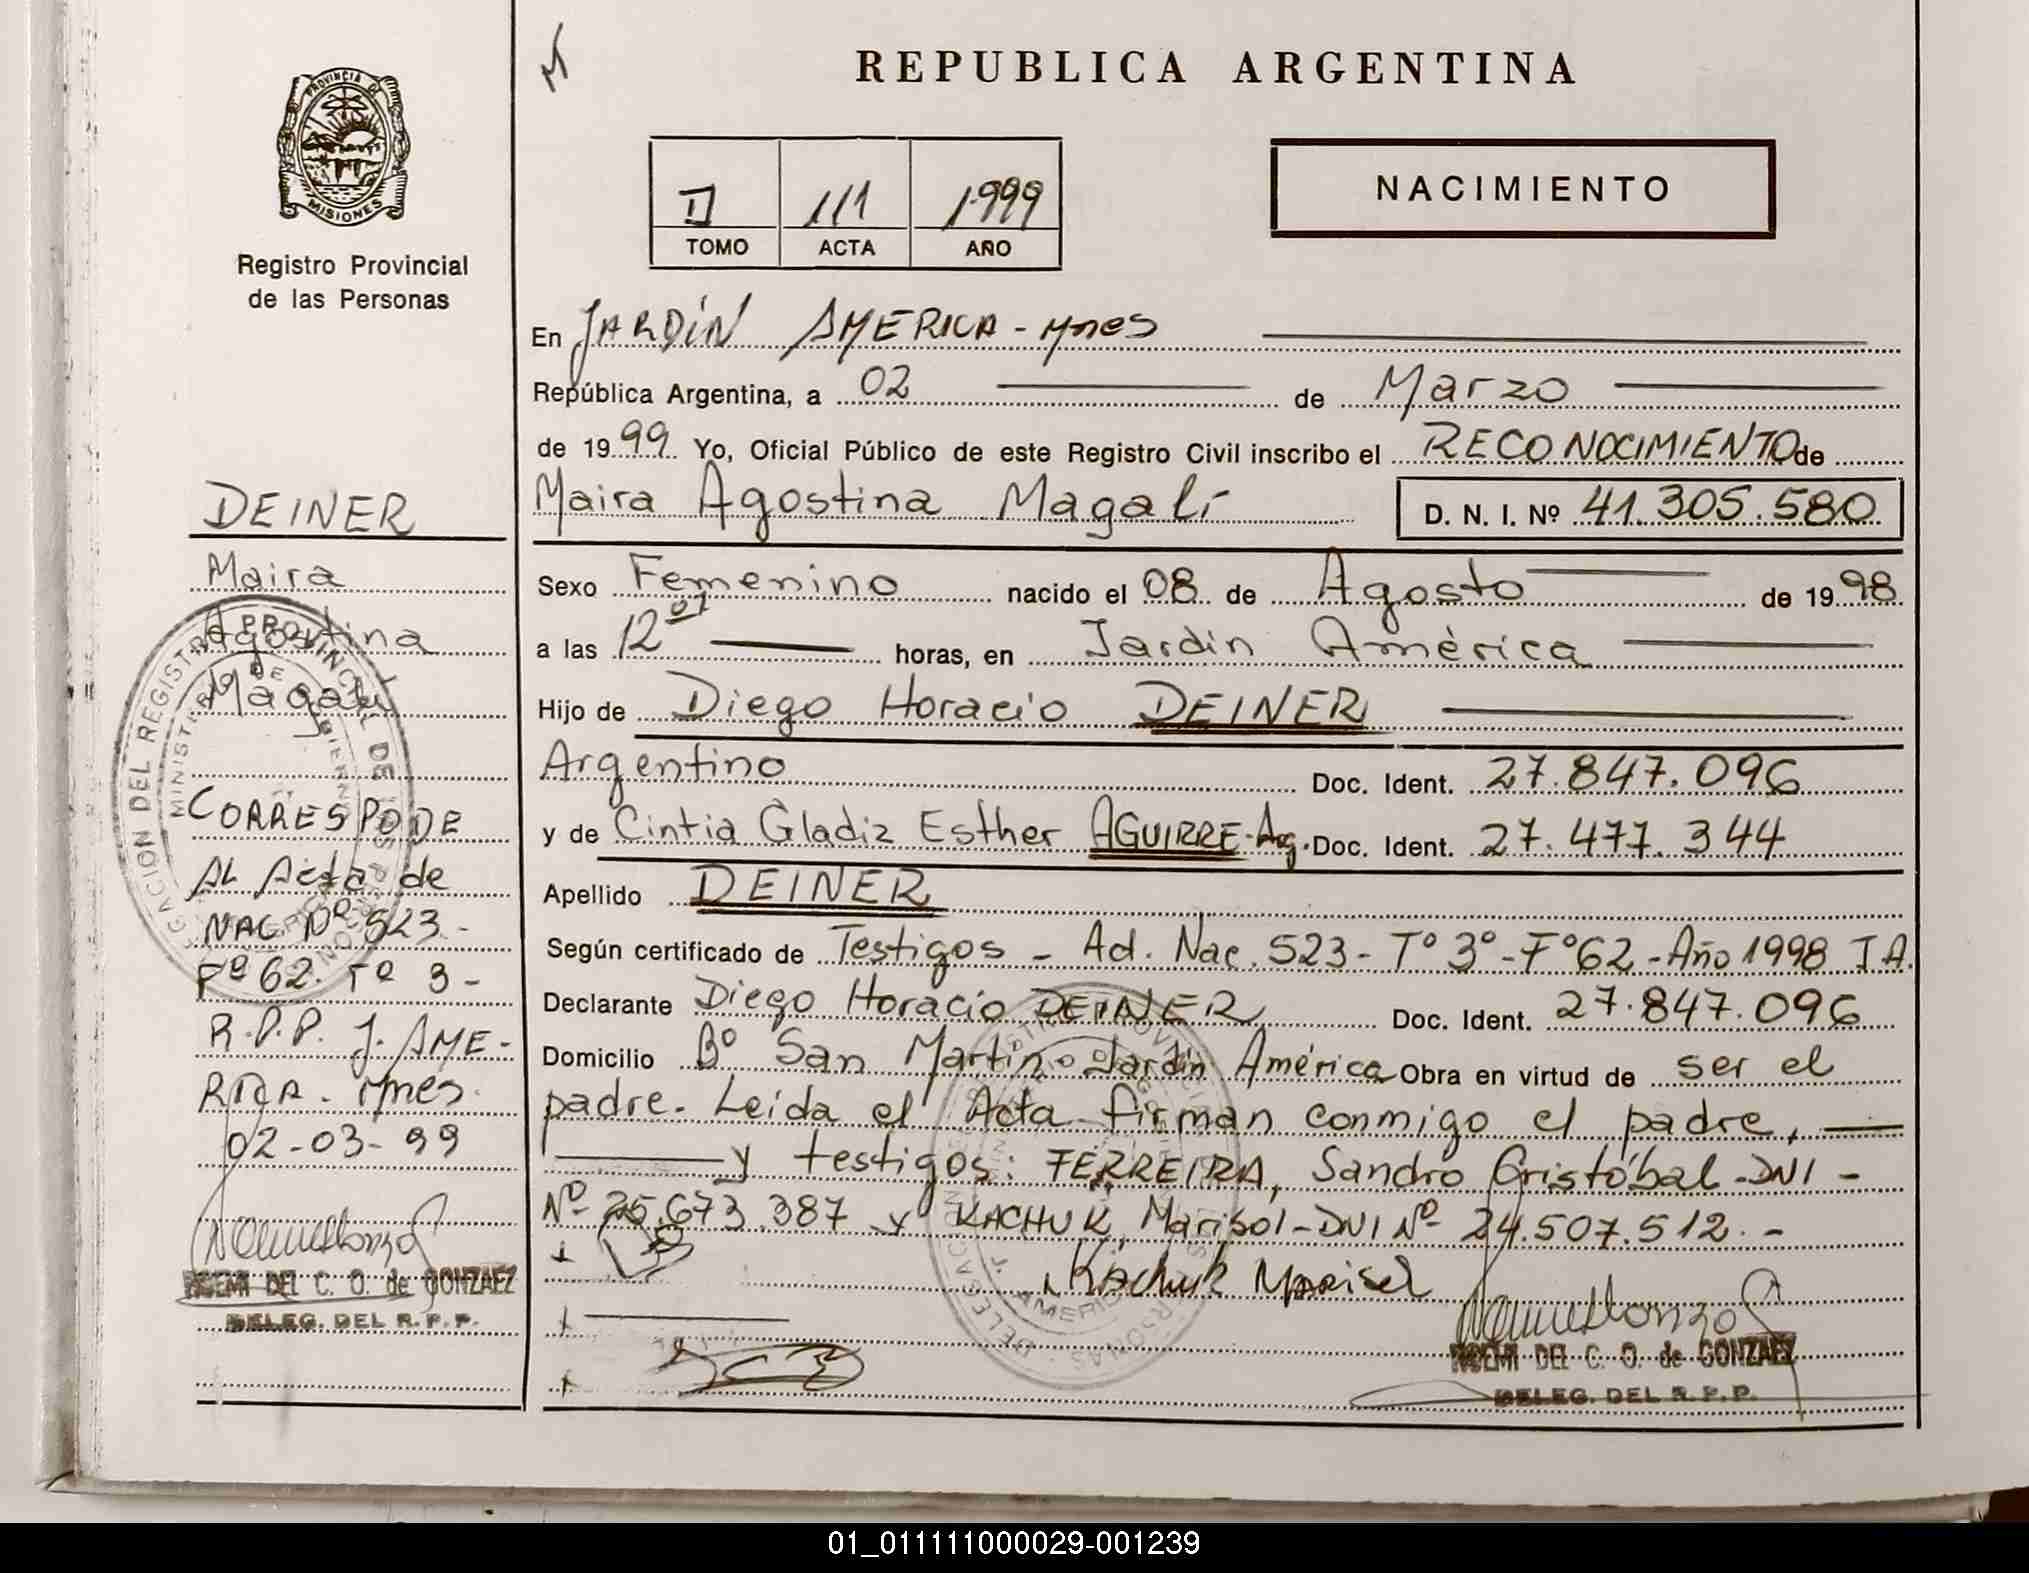 REPUBLICA ARGENTINA
PROVINCIA DE
MISIONES
Registro Provincial
de las Personas
II 111 1999
TOMO ACTA AÑO
NACIMIENTO
En JARDÍN AMERICA - Mnes
República Argentina, a 02 de Marzo
de 1999 Yo, Oficial Público de este Registro Civil inscribo el RECONOCIMIENTO de
Maira Agostina Magalí D. N. I. Nº 41.305.580
Sexo Femenino nacido el 08 de Agosto de 1998
a las 12 07 horas, en Jardín América
Hijo de Diego Horacio DEINER
Argentino Doc. Ident. 27.847.096
y de Cintia Gladiz Esther AGUIRRE-Ag. Doc. Ident. 27.477.344
Apellido DEINER
Según certificado de Testigos - Ad. Nac. 523 - Tº 3º - Fº 62 - Año 1998 J.A.
Declarante Diego Horacio DEINER Doc. Ident. 27.847.096
Domicilio Bº San Martín - Jardín América Obra en virtud de ser el
padre. Leída el Acta firman conmigo el padre,
y testigos: FERREIRA, Sandro Cristóbal - DNI -
Nº 25.673.387 y KACHUK, Marisol - DNI Nº 24.507.512. -
Kachuk Marisol
NOEMI DEL C. O. de GONZAEZ
DELEG. DEL R.P.P.
DEINER
Maira
Agostina
Magalí
CORRESPODE
AL Acta de
NAC Nº 523 -
Fº 62. Tº 3 -
R.P.P. J. AME-
RICA. Mnes.
02-03-99
NOEMI DEL C. O. de GONZAEZ
DELEG. DEL R.P.P.
01_011111000029-001239